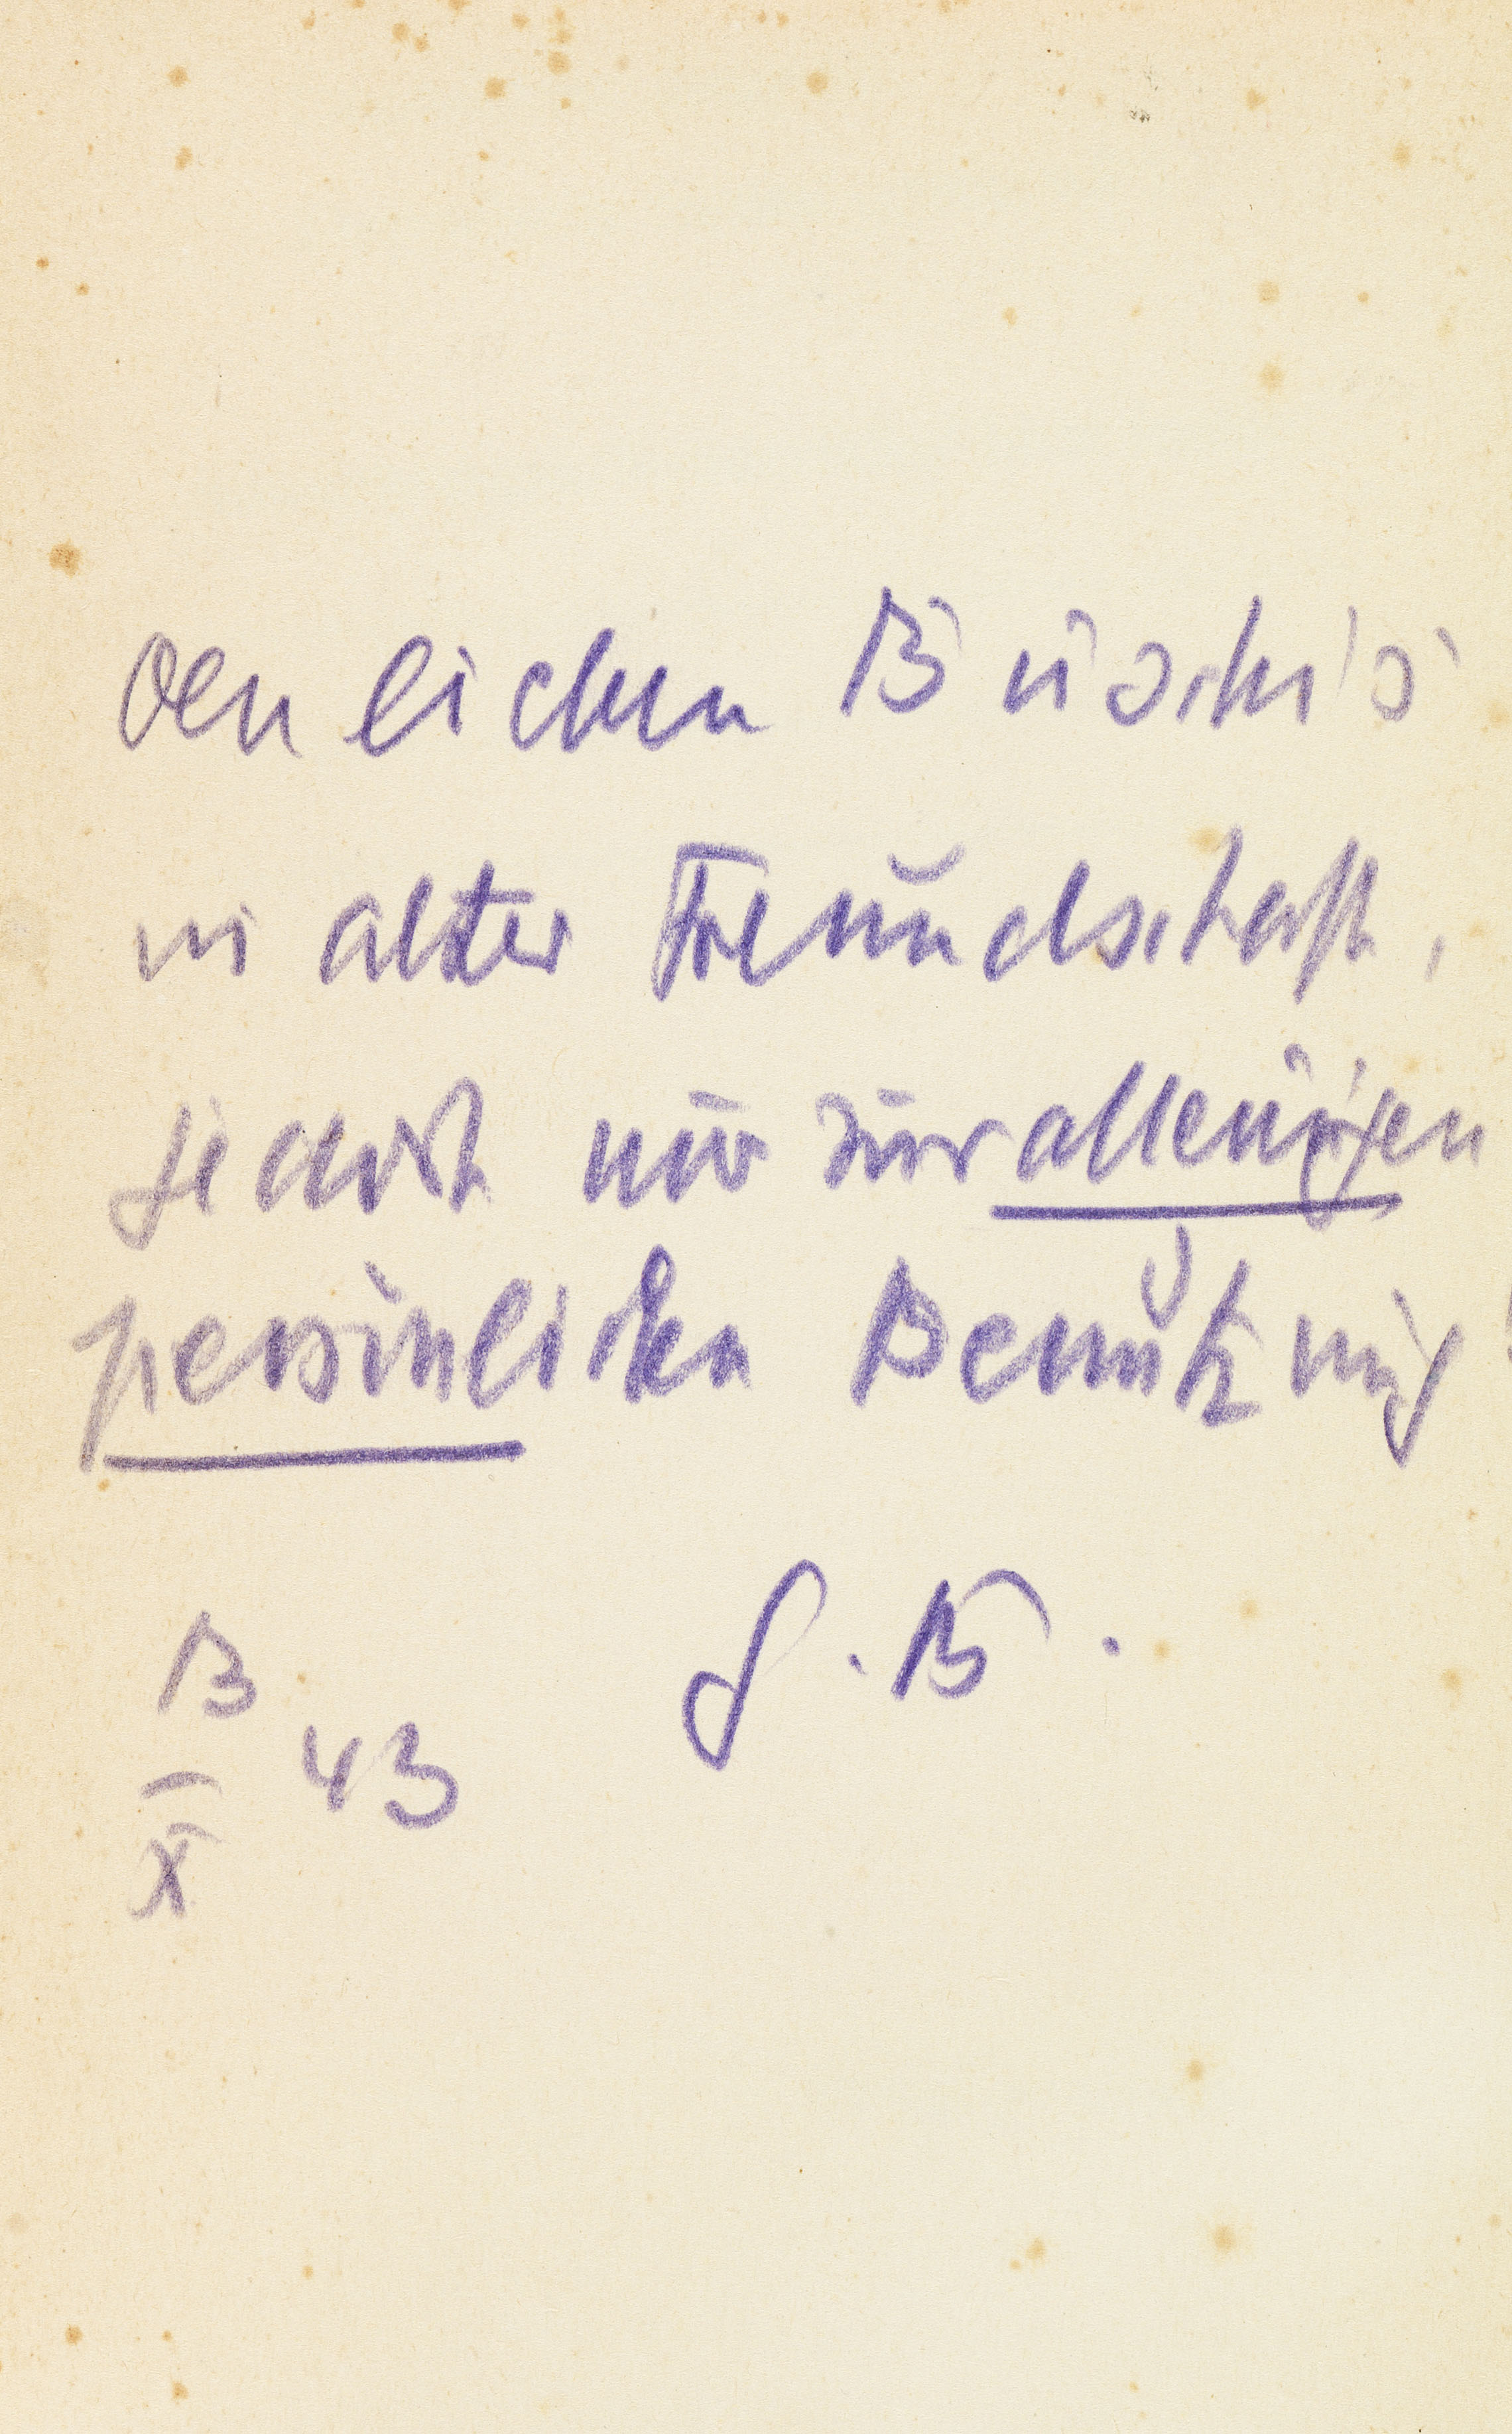 den lieben Büschi's
in alter Freundschaft,
jedoch nur zur alleinigen
persönlichen Benützung!
G. B.
13
43
X